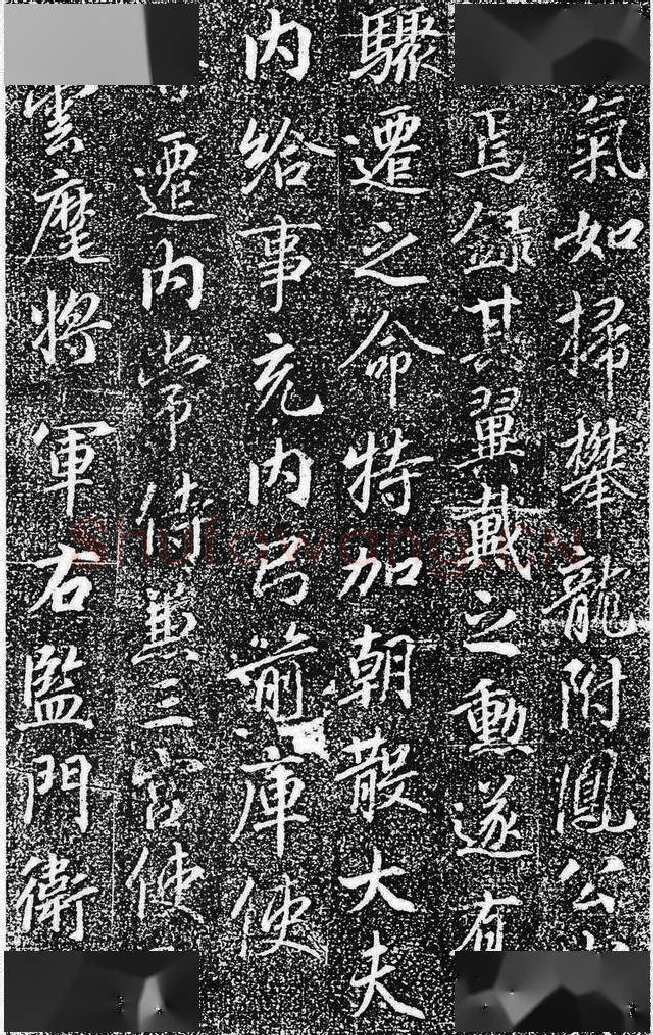 氣如掃攀龍附鳳公
焉録其翼戴之勳遂有
驟遷之命特加朝散大夫
内給事充内弓箭庫使
遷内常侍兼三宮使
雲麾將軍右監門衛
Shufawang.CN